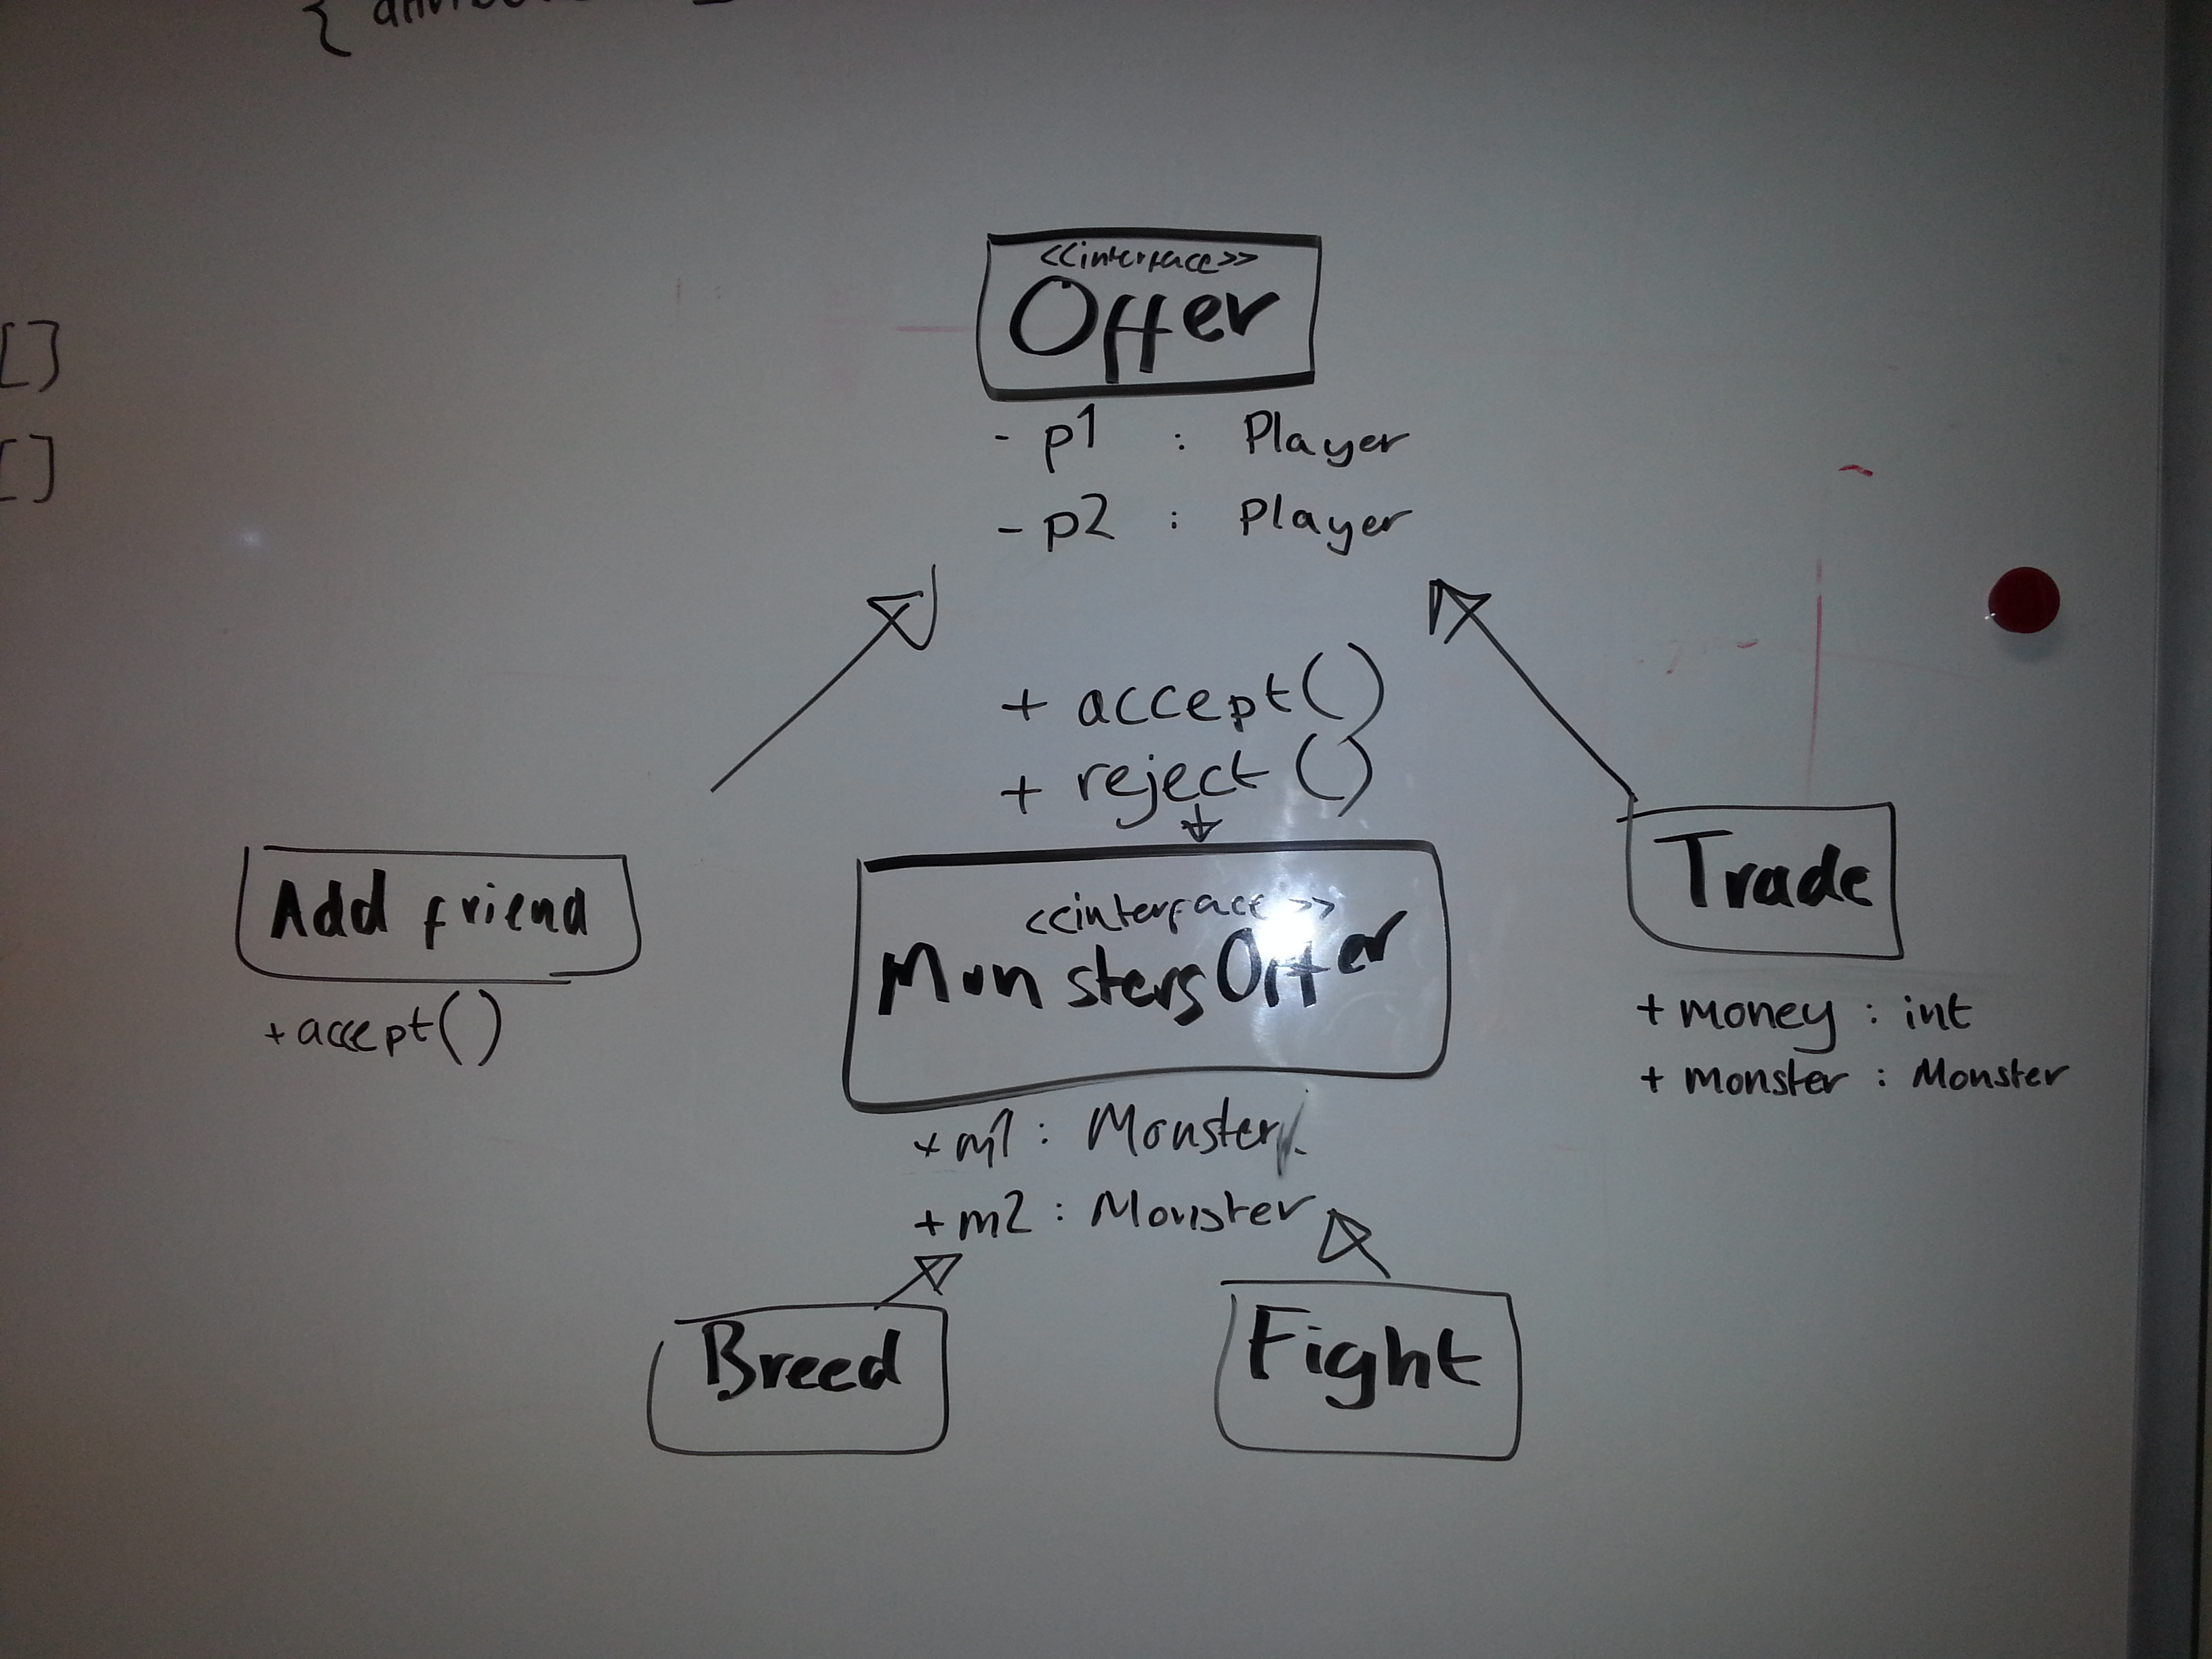 {
[]
[]
<<interface>>
Offer
- p1 : Player
- p2 : Player
+ accept()
+ reject()
Add friend
+ accept()
<<interface>>
MonstersOffer
+ m1 : Monster
+ m2 : Monster
Trade
+ money : int
+ monster : Monster
Breed
Fight